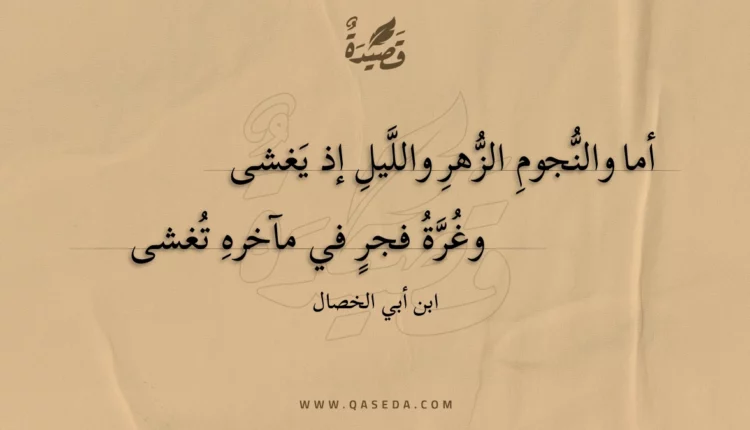 قَصِيْدَةٌ
أما والنُّجومِ الزُّهرِ واللَّيلِ إذ يَغشى
وغُرَّةُ فجرٍ في مآخرهِ تُغشى
ابن أبي الخصال
WWW.QASEDA.COM